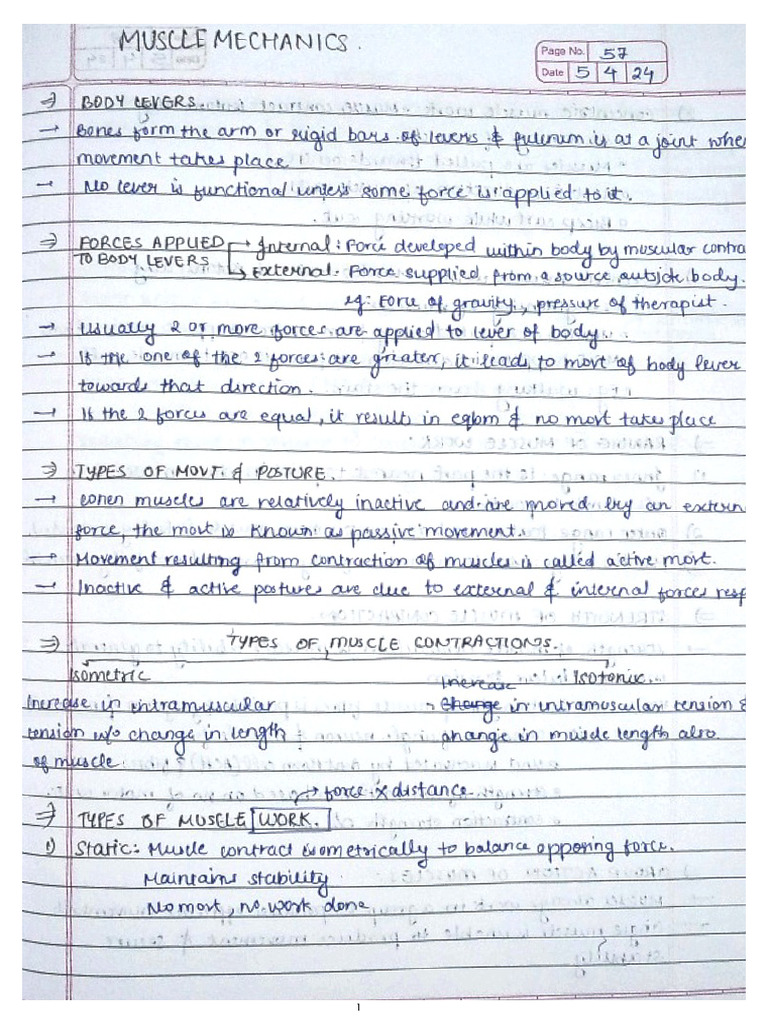 MUSCLE MECHANICS.
Page No. 57
Date 5 4 24
⇒ BODY LEVERS
→ Bones form the arm or rigid bars of levers & fulcrum is at a joint whe
movement takes place
→ No lever is functional unless some force is applied to it.
⇒ FORCES APPLIED TO BODY LEVERS → Internal: Force developed within body by muscular contra
→ External: Force supplied from a source outside body.
eg: Force of gravity, pressure of therapist.
→ Usually 2 or more forces are applied to lever of body.
→ If the one of the 2 forces are greater, it leads to movt of body lever
towards that direction.
→ If the 2 forces are equal, it results in eqbm & no movt takes place
⇒ TYPES OF MOVT & POSTURE.
→ When muscles are relatively inactive and are moved by an extern
force, the movt is known as passive movement.
→ Movement resulting from contraction of muscles is called active movt.
→ Inactive & active postures are due to external & internal forces resp
⇒ TYPES OF MUSCLE CONTRACTIONS.
Isometric
Increase in intramuscular
tension w/o change in length
of muscle
Isotonic.
Increase
- Change in intramuscular tension &
change in muscle length also.
→ force x distance
⇒ TYPES OF MUSCLE WORK.
1) Static: Muscle contract isometrically to balance opposing force.
Maintains stability
No movt, no work done
1